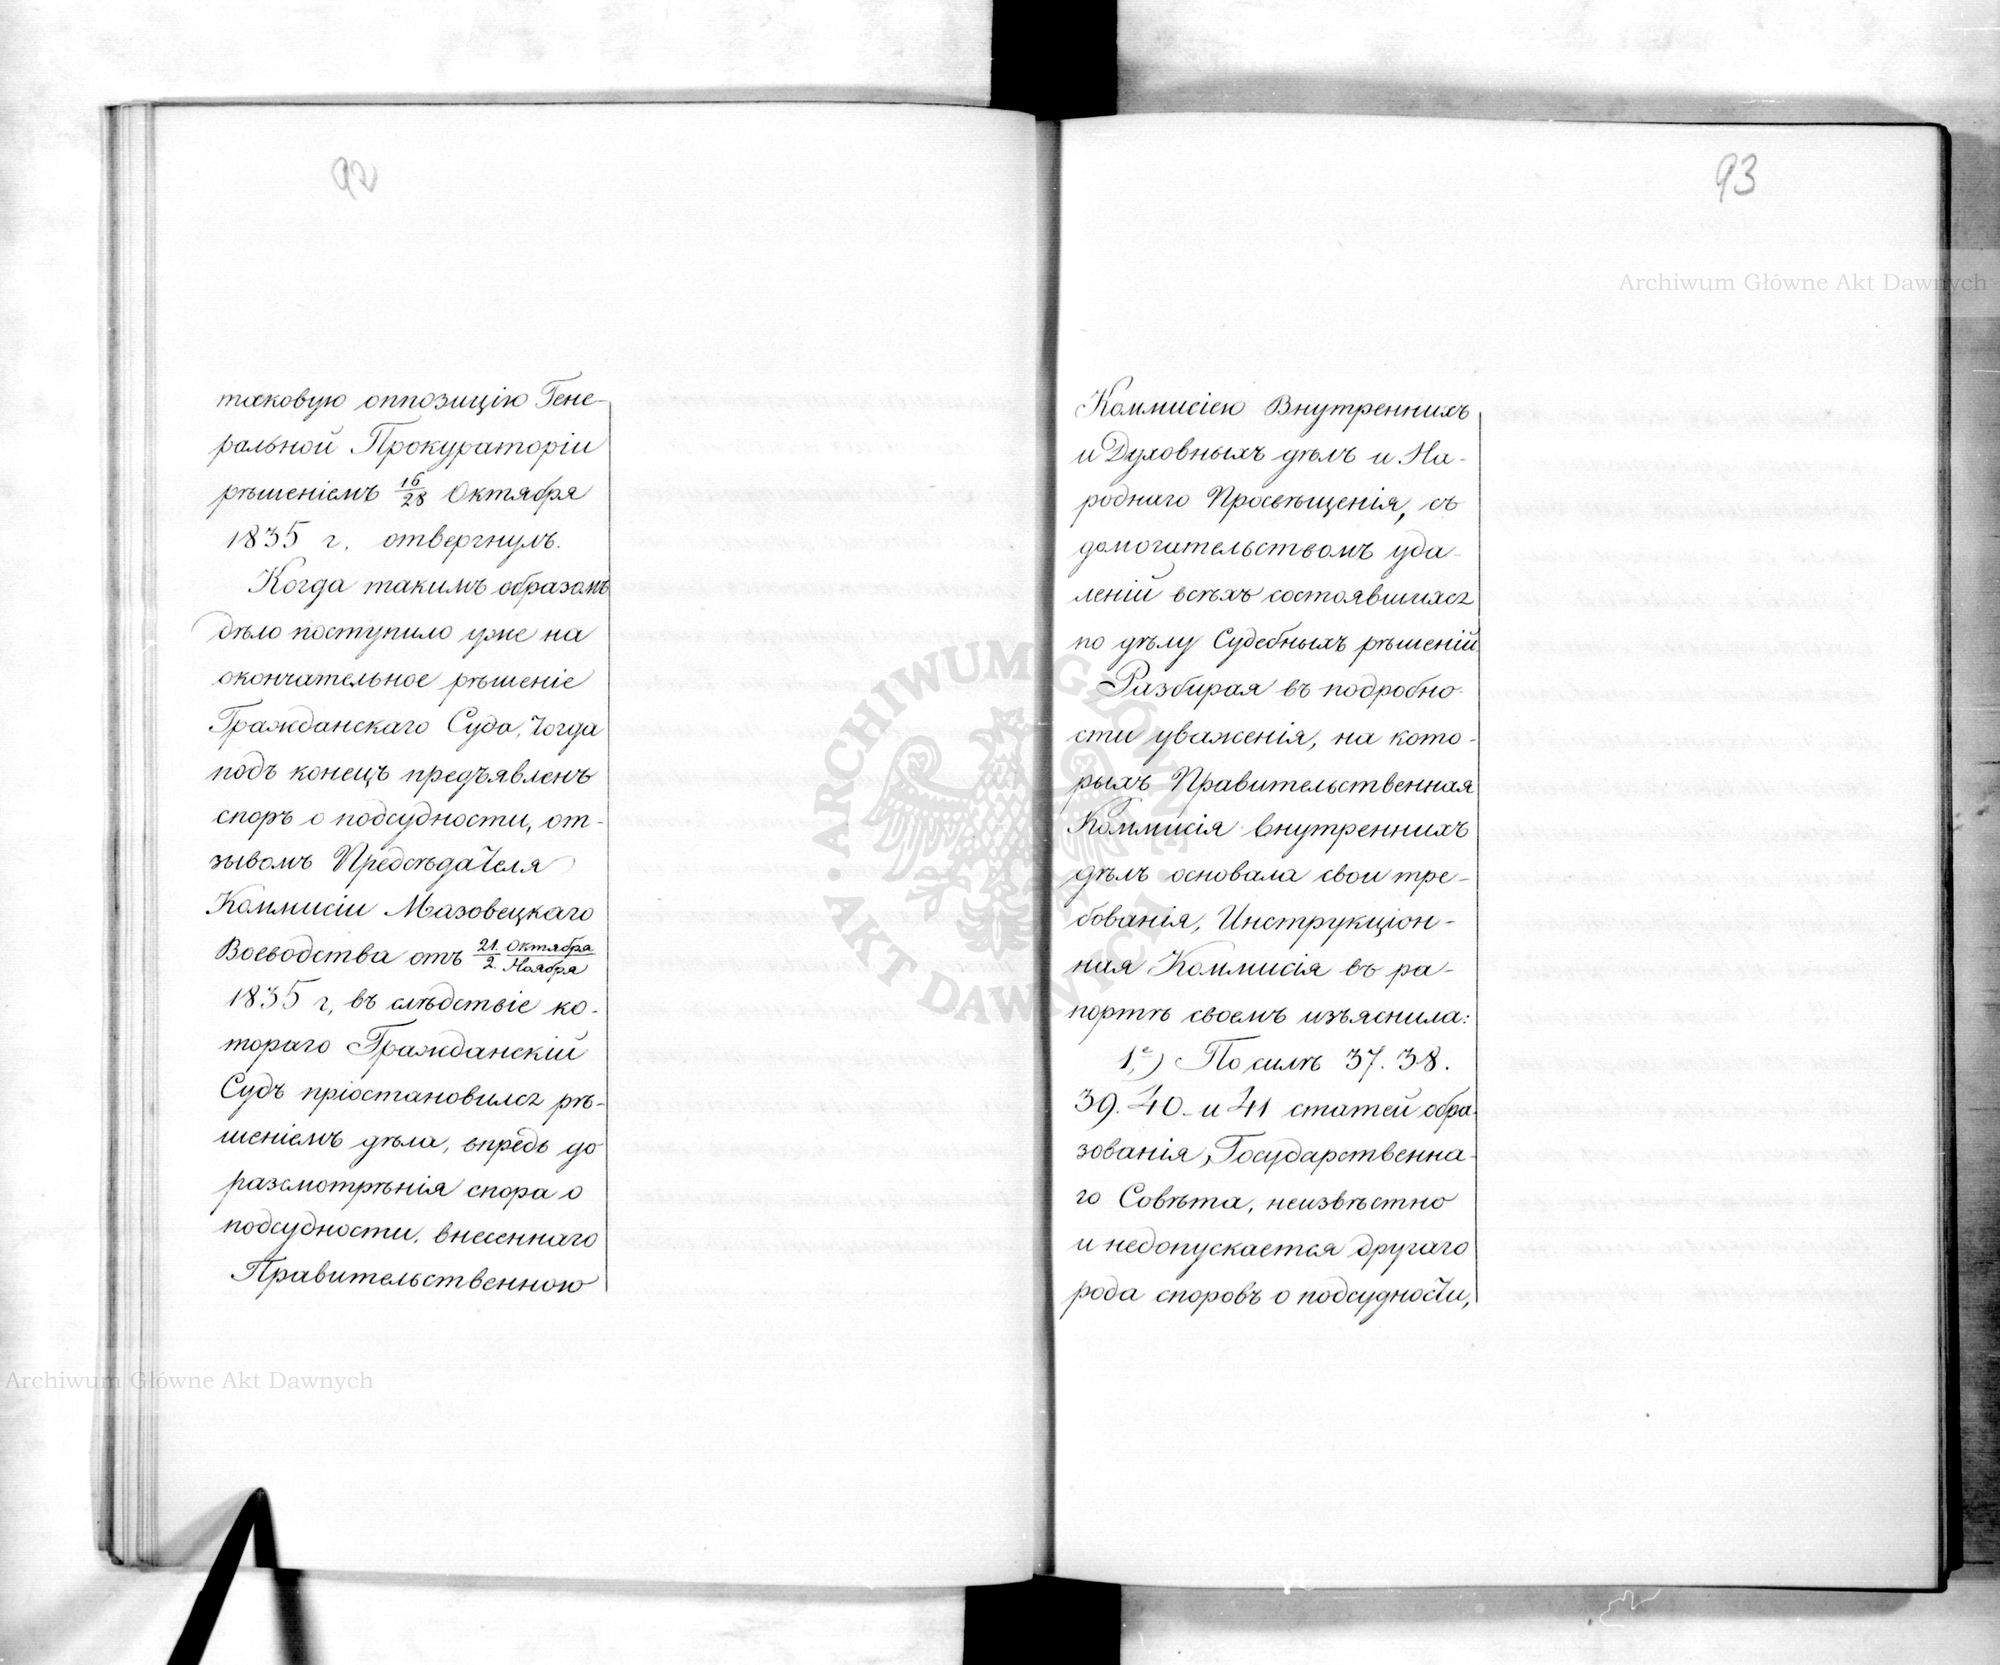 92
таковую оппозицію Гене-
ральной Прокураторіи
рѣшеніемъ 16/28 Октября
1835 г. отвергнулъ.
Когда такимъ образомъ
дѣло поступило уже на
окончательное рѣшеніе
Гражданскаго Суда, тогда
подъ конецъ предъявленъ
споръ о подсудности, от-
зывомъ Предсѣдателя
Коммисіи Мазовецкаго
Воеводства отъ 21. Октября/2. Ноября
1835 г, въ слѣдствіе ко-
тораго Гражданскій
Судъ пріостановился рѣ-
шеніемъ дѣла, впредь до
разсмотрѣнія спора о
подсудности, внесеннаго
Правительственною
93
Коммисіею Внутреннихъ
и Духовныхъ дѣлъ и На-
роднаго Просвѣщенія, съ
домогательствомъ уда-
леній всѣхъ состоявшихся
по дѣлу Судебныхъ рѣшеній
Разбирая въ подробно-
сти уваженія, на кото-
рыхъ Правительственная
Коммисія внутреннихъ
дѣлъ основала свои тре-
бованія, Инструкціон-
ная Коммисія въ ра-
портѣ своемъ изъяснила:
1,е) По силѣ 37. 38.
39. 40. и 41 статей обра-
зованія, Государственна-
го Совѣта, неизвѣстно
и недопускается другаго
рода споровъ о подсудности,
Archiwum Główne Akt Dawnych
ARCHIWUM GŁÓWNE
AKT DAWNYCH
Archiwum Główne Akt Dawnych